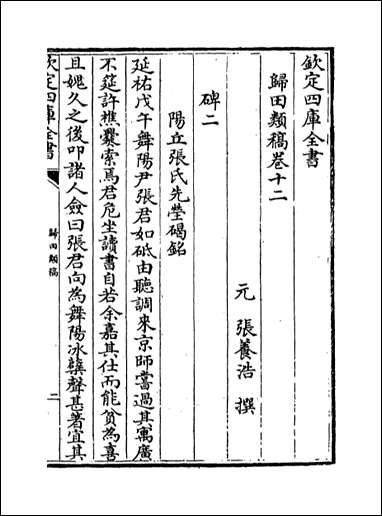 欽定四庫全書
歸田類稿卷十二
元 張養浩 撰
碑二
陽丘張氏先塋碣銘
延祐戊午舞陽尹張君如砥由聽調來京師嘗過其寓廣
不筵許樵爨索焉君危坐讀書自若余嘉其仕而能貧為喜
且媿久之後叩諸人僉曰張君向為舞陽冰櫱聲甚著宜其
欽定四庫全書
歸田類稿